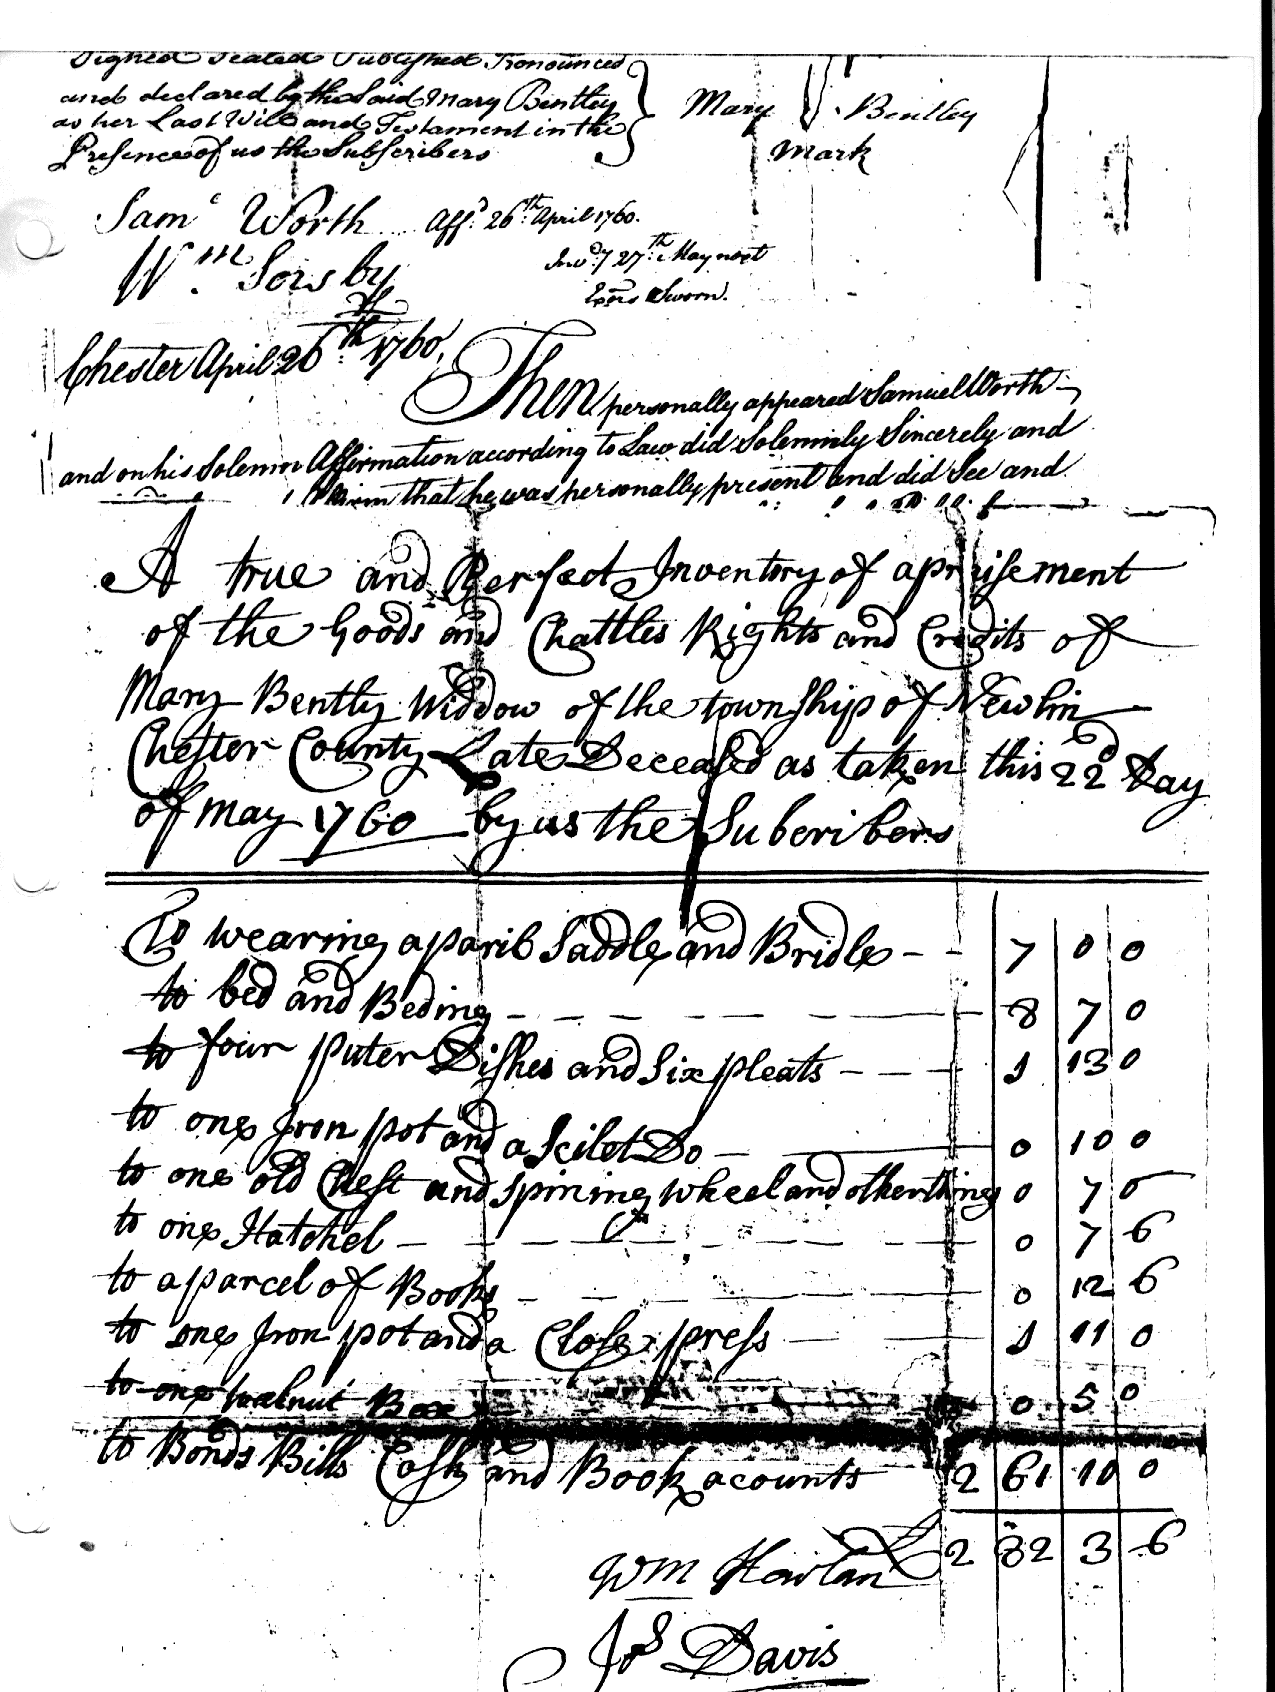 Signed Sealed Published Pronounced
and declared by the Said Mary Bentley
as her Last Will and Testament in the
Presence of us the Subscribers
Mary Bentley
Mark
Sam.l Worth Aff.d 26.th April 1760.
W.m Sorsby Inv.y 27.th May next
Ex.rs Sworn.
Chester April 26th 1760,
Then personally appeared Samuel Worth
and on his Solemn Affirmation according to Law did Solemnly Sincerely and
that he was personally present and did See and
A true and Perfect Inventory of apraisement
of the Goods and Chattles Rights and Credits of
Mary Bently Widdow of the township of Newlin
Chester County Late Deceased as taken this 22d Day
of May 1760 by us the Subcribers
To wearing aparil Saddle and Bridle - - 7 0 0
to bed and Beding - - - - - 8 7 0
to four puter Dishes and Six pleats - - - 1 13 0
to one Iron pot and a Scilet Do - 0 10 0
to one old Chest and Spining wheel and other things 0 7 0
to one Hatchel - - - - - 0 7 6
to a parcel of Books - - - - 0 12 6
to one Iron pot and a Close press - - 1 11 0
to one walnut Box 0 5 0
to Bonds Bills Cash and Book acounts 2 61 10 0
£ 2 82 3 6
Wm Harlan
Jos Davis